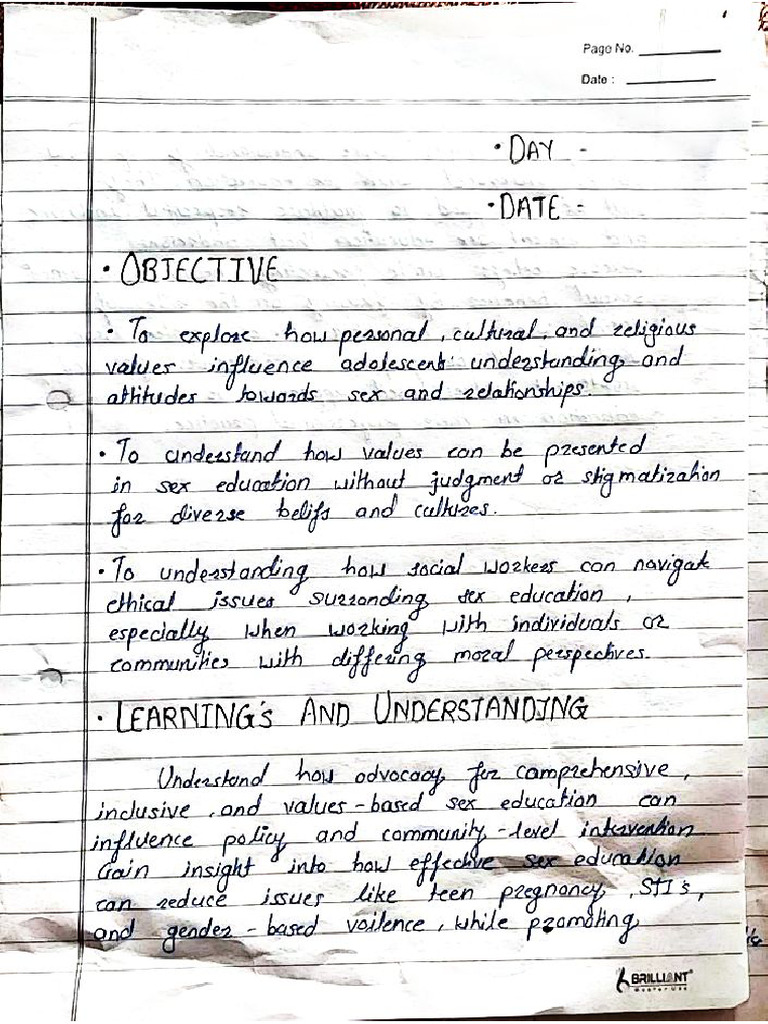 Page No.
Date :
• DAY -
• DATE -
• OBJECTIVE
• To explore how personal, cultural, and religious
values influence adolescent understanding and
attitudes towards sex and relationships.
• To understand how values can be presented
in sex education without judgment or stigmatization
for diverse belifs and cultures.
• To understanding how social workers can navigate
ethical issues surronding sex education,
especially when working with individuals or
communities with differing moral perspectives.
• LEARNING's AND UNDERSTANDING
Understand how advocacy for comprehensive,
inclusive, and values-based sex education can
influence policy and community-level intervention
Gain insight into how effective sex education
can reduce issues like teen pregnancy, STI's,
and gender-based voilence, while promoting
BRILLIANT